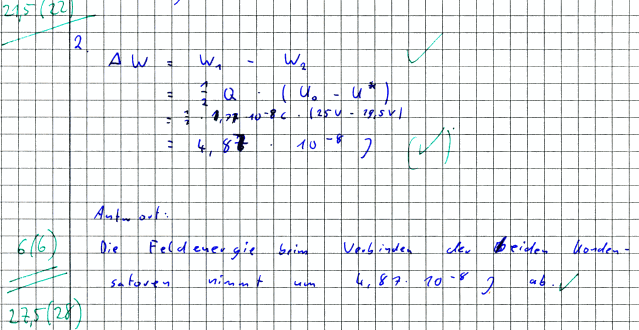 21,5 (22)
2.
Δ W = W₁ - W₂
= 1/2 Q · ( U₀ - U* )
= 1/2 · 1,77 · 10⁻⁸ C · (25V - 19,5V)
= 4,87 · 10⁻⁸ J (✓)
Antwort:
6 (6) Die Feldenergie beim Verbinden der beiden Konden-
satoren nimmt um 4,87 · 10⁻⁸ J ab. ✓
27,5 (28)